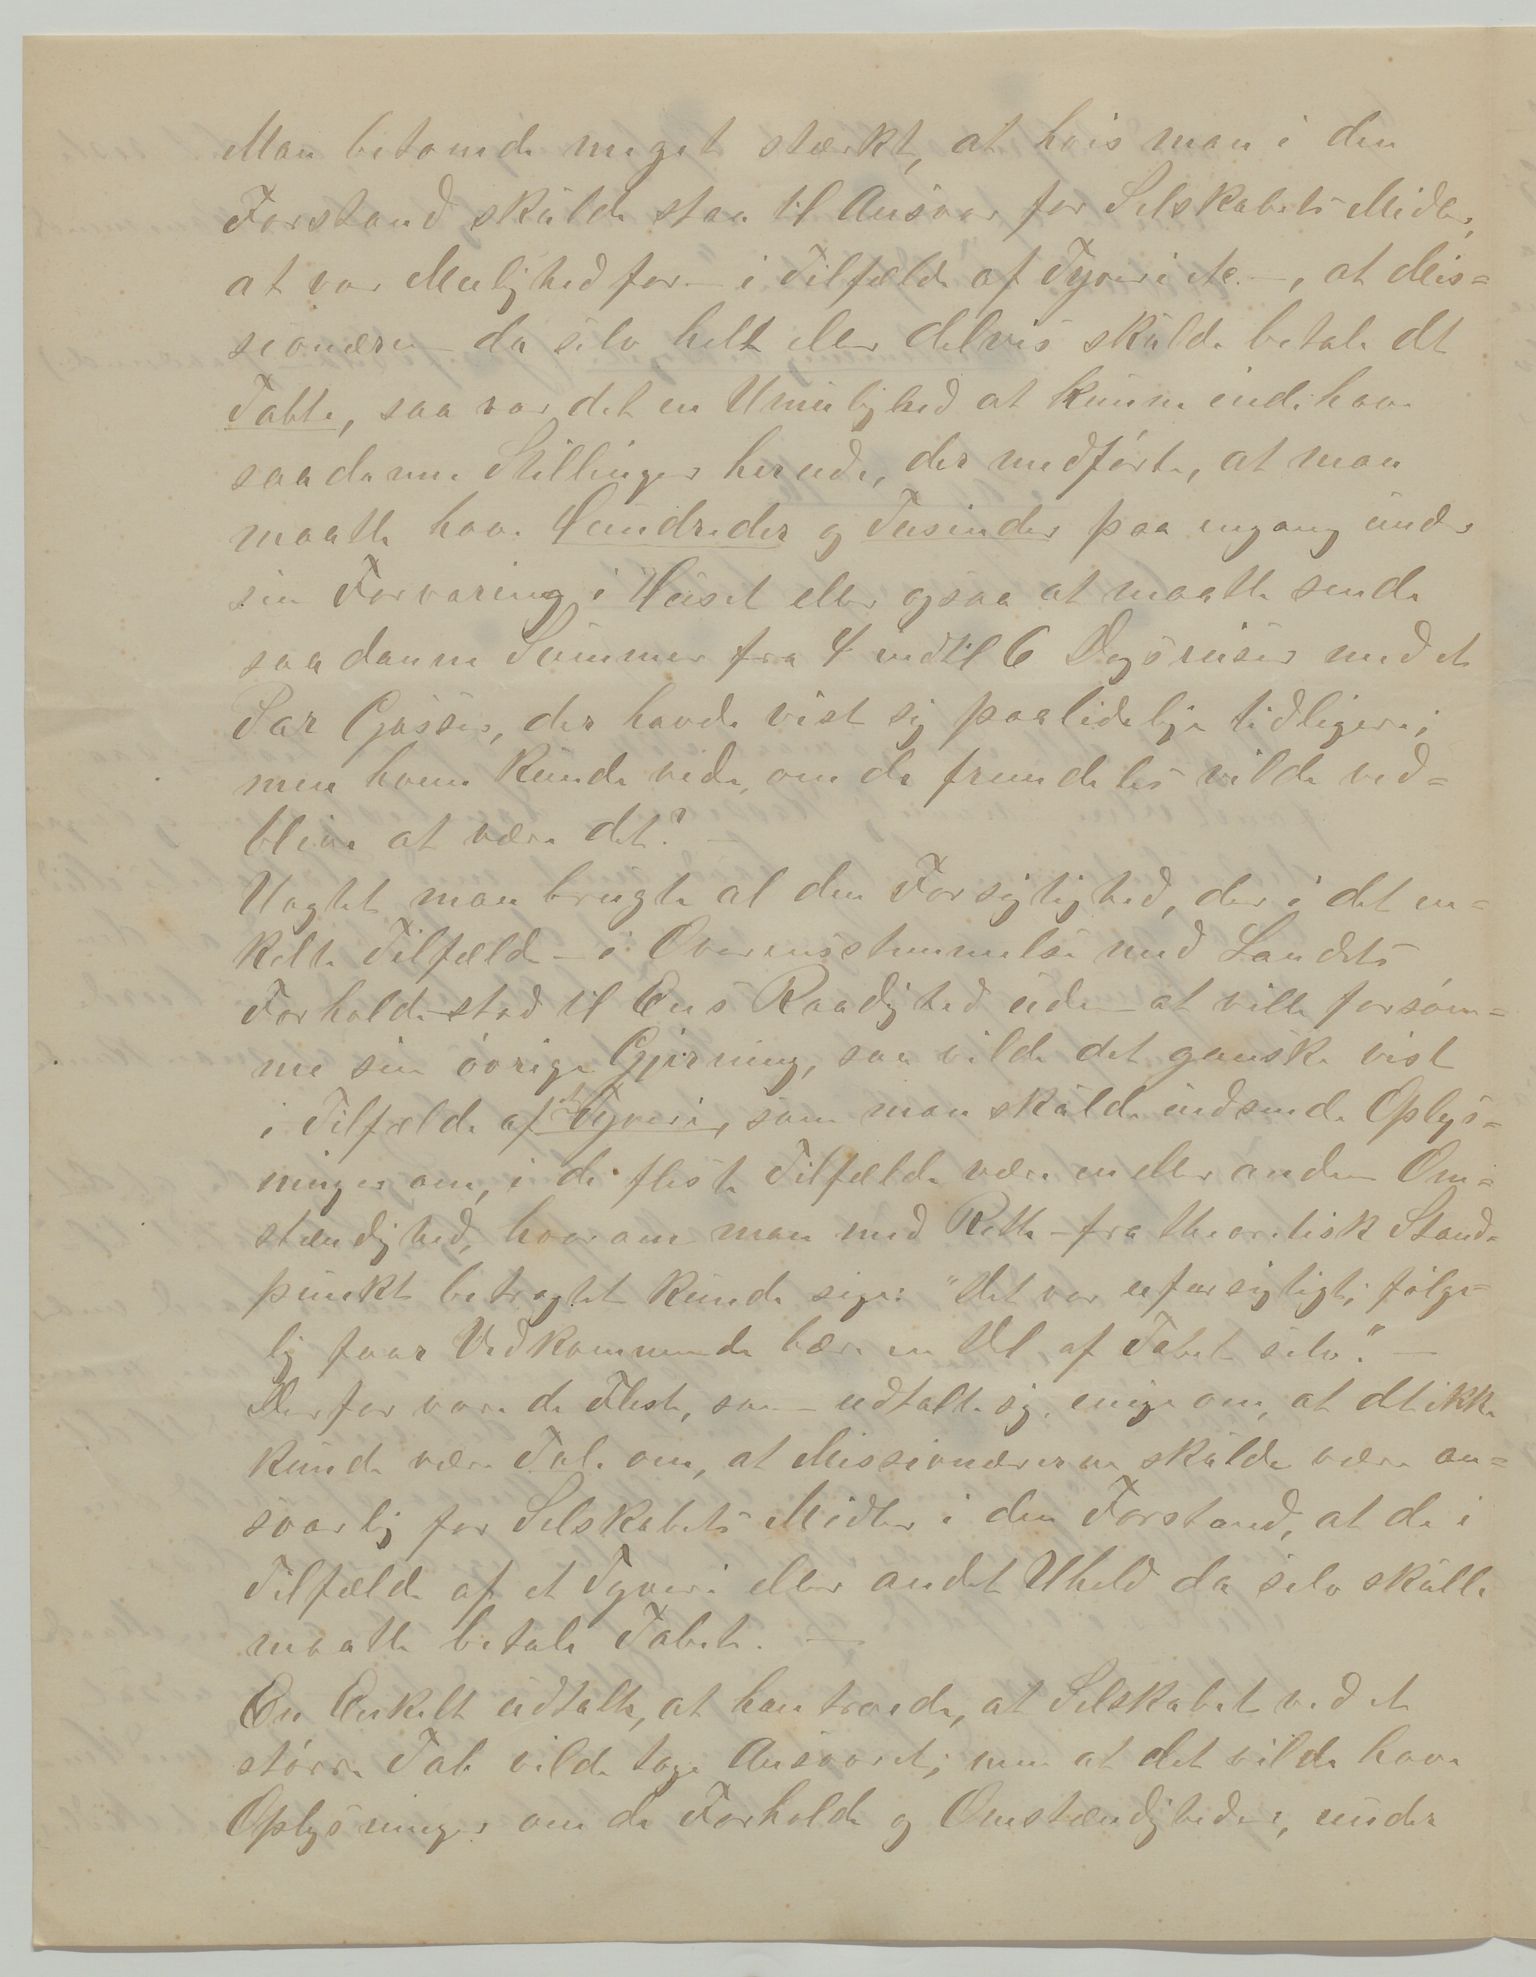 Man betonede meget stærkt, at hvis man i den
Forstand skulde staa til Ansvar for Selskabets Midler,
at der var Mulighed for – i Tilfælde af Tyveri etc. –, at Mis=
sionæren da selv helt eller delvis skulde betale det
Tabte, saa var det en Umulighed at kunne indehave
saadanne Stillinger herude, der medførte, at man
maatte have Hundreder og Tusinder paa engang under
sin Forvaring i Huset eller ogsaa at maatte sende
saadanne Summer fra 4 indtil 6 Dagsreiser med et
Par Gasser, der havde vist sig paalidelige tidligere;
men hvem kunde vide, om de fremdeles vilde ved=
blive at være det? –
Uagtet man brugte al den Forsigtighed, der i det en=
kelte Tilfælde – i Overensstemmelse med Landets
Forholde stod til Ens Raadighed uden at ville forsøm=
me sin øvrige Gjerning, saa vilde det ganske vist
i Tilfælde af Tyveri, som man skulde indsende Oplys=
ninger om, i de fleste Tilfælde være en eller anden Om=
stændighed, hvorom man med Rette – fra theoretisk Stand=
punkt betragtet kunde sige: "det var uforsigtigt; følge=
lig faar Vedkommende bære en Del af Tabet selv." –
Derfor vare de Fleste, som udtalte sig, enige om, at det ikke
kunde være Tale om, at Missionærerne skulde være an=
svarlig for Selskabets Midler i den Forstand, at de i
Tilfælde af et Tyveri eller andet Uheld da selv skulle
maatte betale Tabet. –
En Enkelt udtalte, at han troede, at Selskabet ved et
større Tab vilde tage Ansvaret; men at det vilde have
Oplysninger om de Forholde og Omstændigheder, under